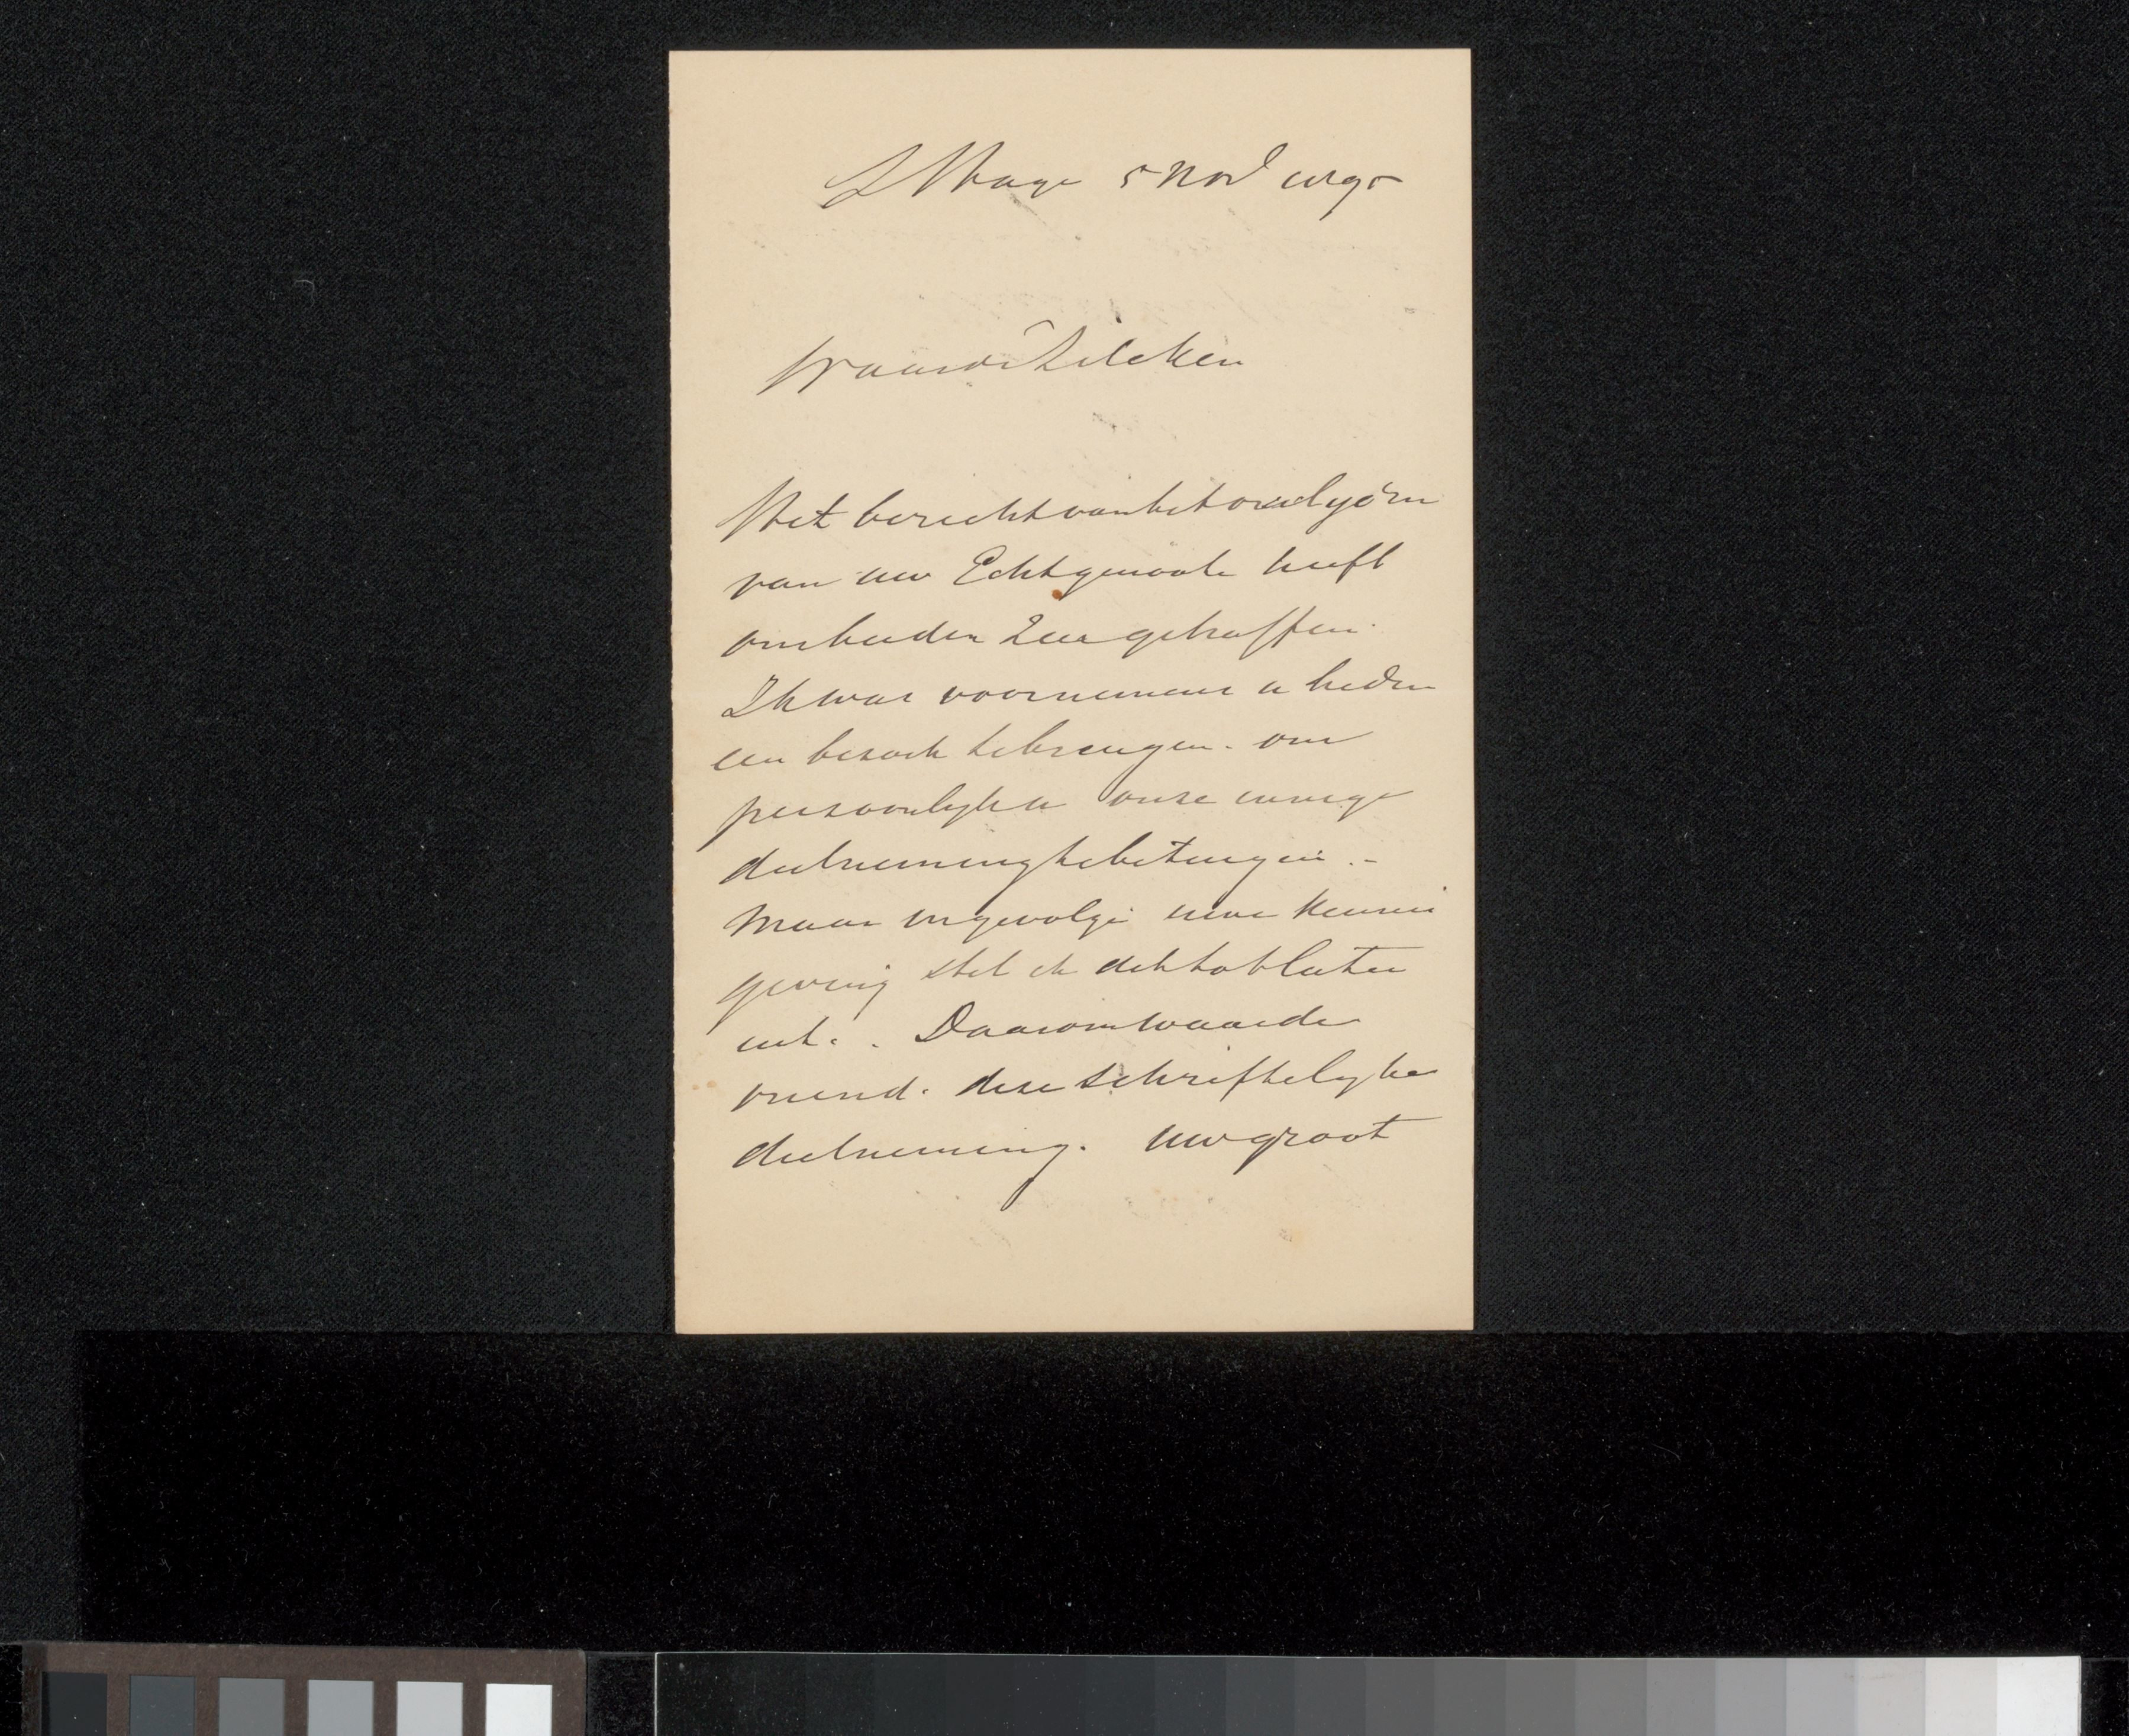 S Hage 5 Nov
Waarde Zilcken
Het bericht van het overlyden
van uw Echtgenoote heeft
ons beiden zeer getroffen.
Ik was voornemens u heden
een bezoek te brengen. om
persoonlyk u onze innige
deelneming te betuigen. -
Maar ingevolge uwe kennis
geving stel ik dit tot later
uit. . Daarom waarde
vriend. deze schriftelyke
deelneming. Uw groot